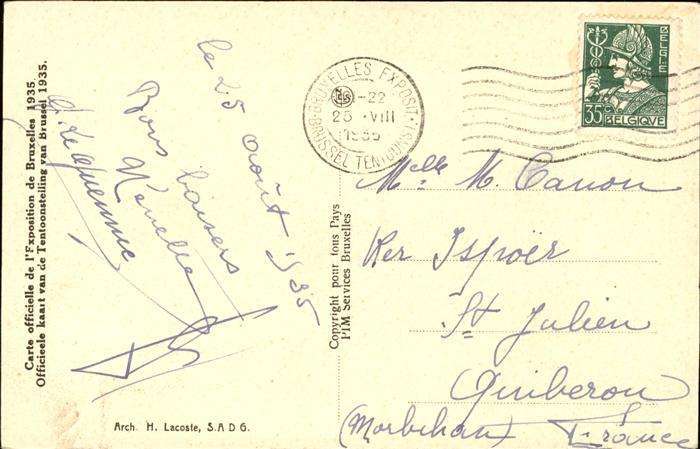 Carte officielle de l'Exposition de Bruxelles 1935
Officieele kaart van de Tentoonstelling van Brussel 1935.
le 25 août 1935
Bons baisers
Arch. H. Lacoste, S.A.D.G.
Copyright pour tous Pays
PIM Services Bruxelles
BRUXELLES EXPOSIT.
-22
25 VIII
1935
BRUSSEL TENTOONST.
BELGIE
35c
BELGIQUE
Melle M. Canon
Ker Ispoër
St Julien
Quiberon
(Morbihan) France